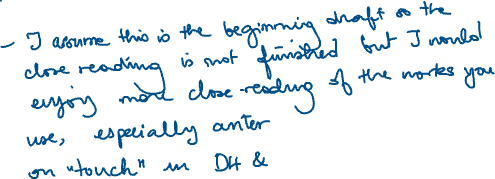 - I assume this is the beginning draft so the
close reading is not finished but I would
enjoy more close-reading of the works you
use, especially
on "touch" in DH &